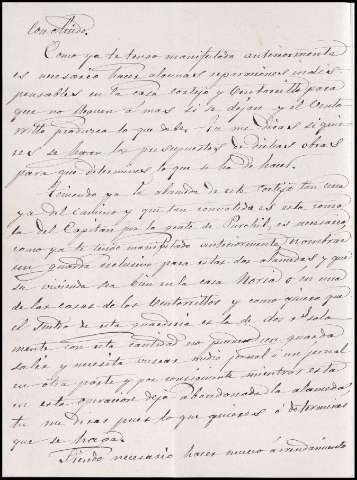 concluido.
Como ya te tengo manifestado anteriormente
es necesario hacer algunas reparaciones indis-
pensables en la casa cortijo y Ventorrillo para
que no lleguen a mas si se dejan y el Vento-
rrillo produzca lo que debe. Tu me diras si quie-
res se hagan los presupuestos de dichas obras
para que determines lo que se ha de hacer.
Teniendo ya la alameda de este Cortijo tan cerca
ya del camino y que tan concurrida es esta como
la del Capitan por la gente de Purchil, es necesario,
como ya te tengo manifestado anteriormente, nombrar
un guarda exclusivo para estas dos alamedas y que
su vivienda sea bien en la casa Noria ó en una
de las casas de los Ventorrillos y como quiera que
el de esta guarderia es la de dos sola
mente con esta cantidad no un guarda
salir y necesita buscar medio jornal ó un jornal
en otra parte y por consiguiente mientras esta
en esta operacion deja abandonada la alameda,
tu me diras pues lo que quieres ó determinas
que se haga.
Siendo necesario hacer nuevo arrendamiento